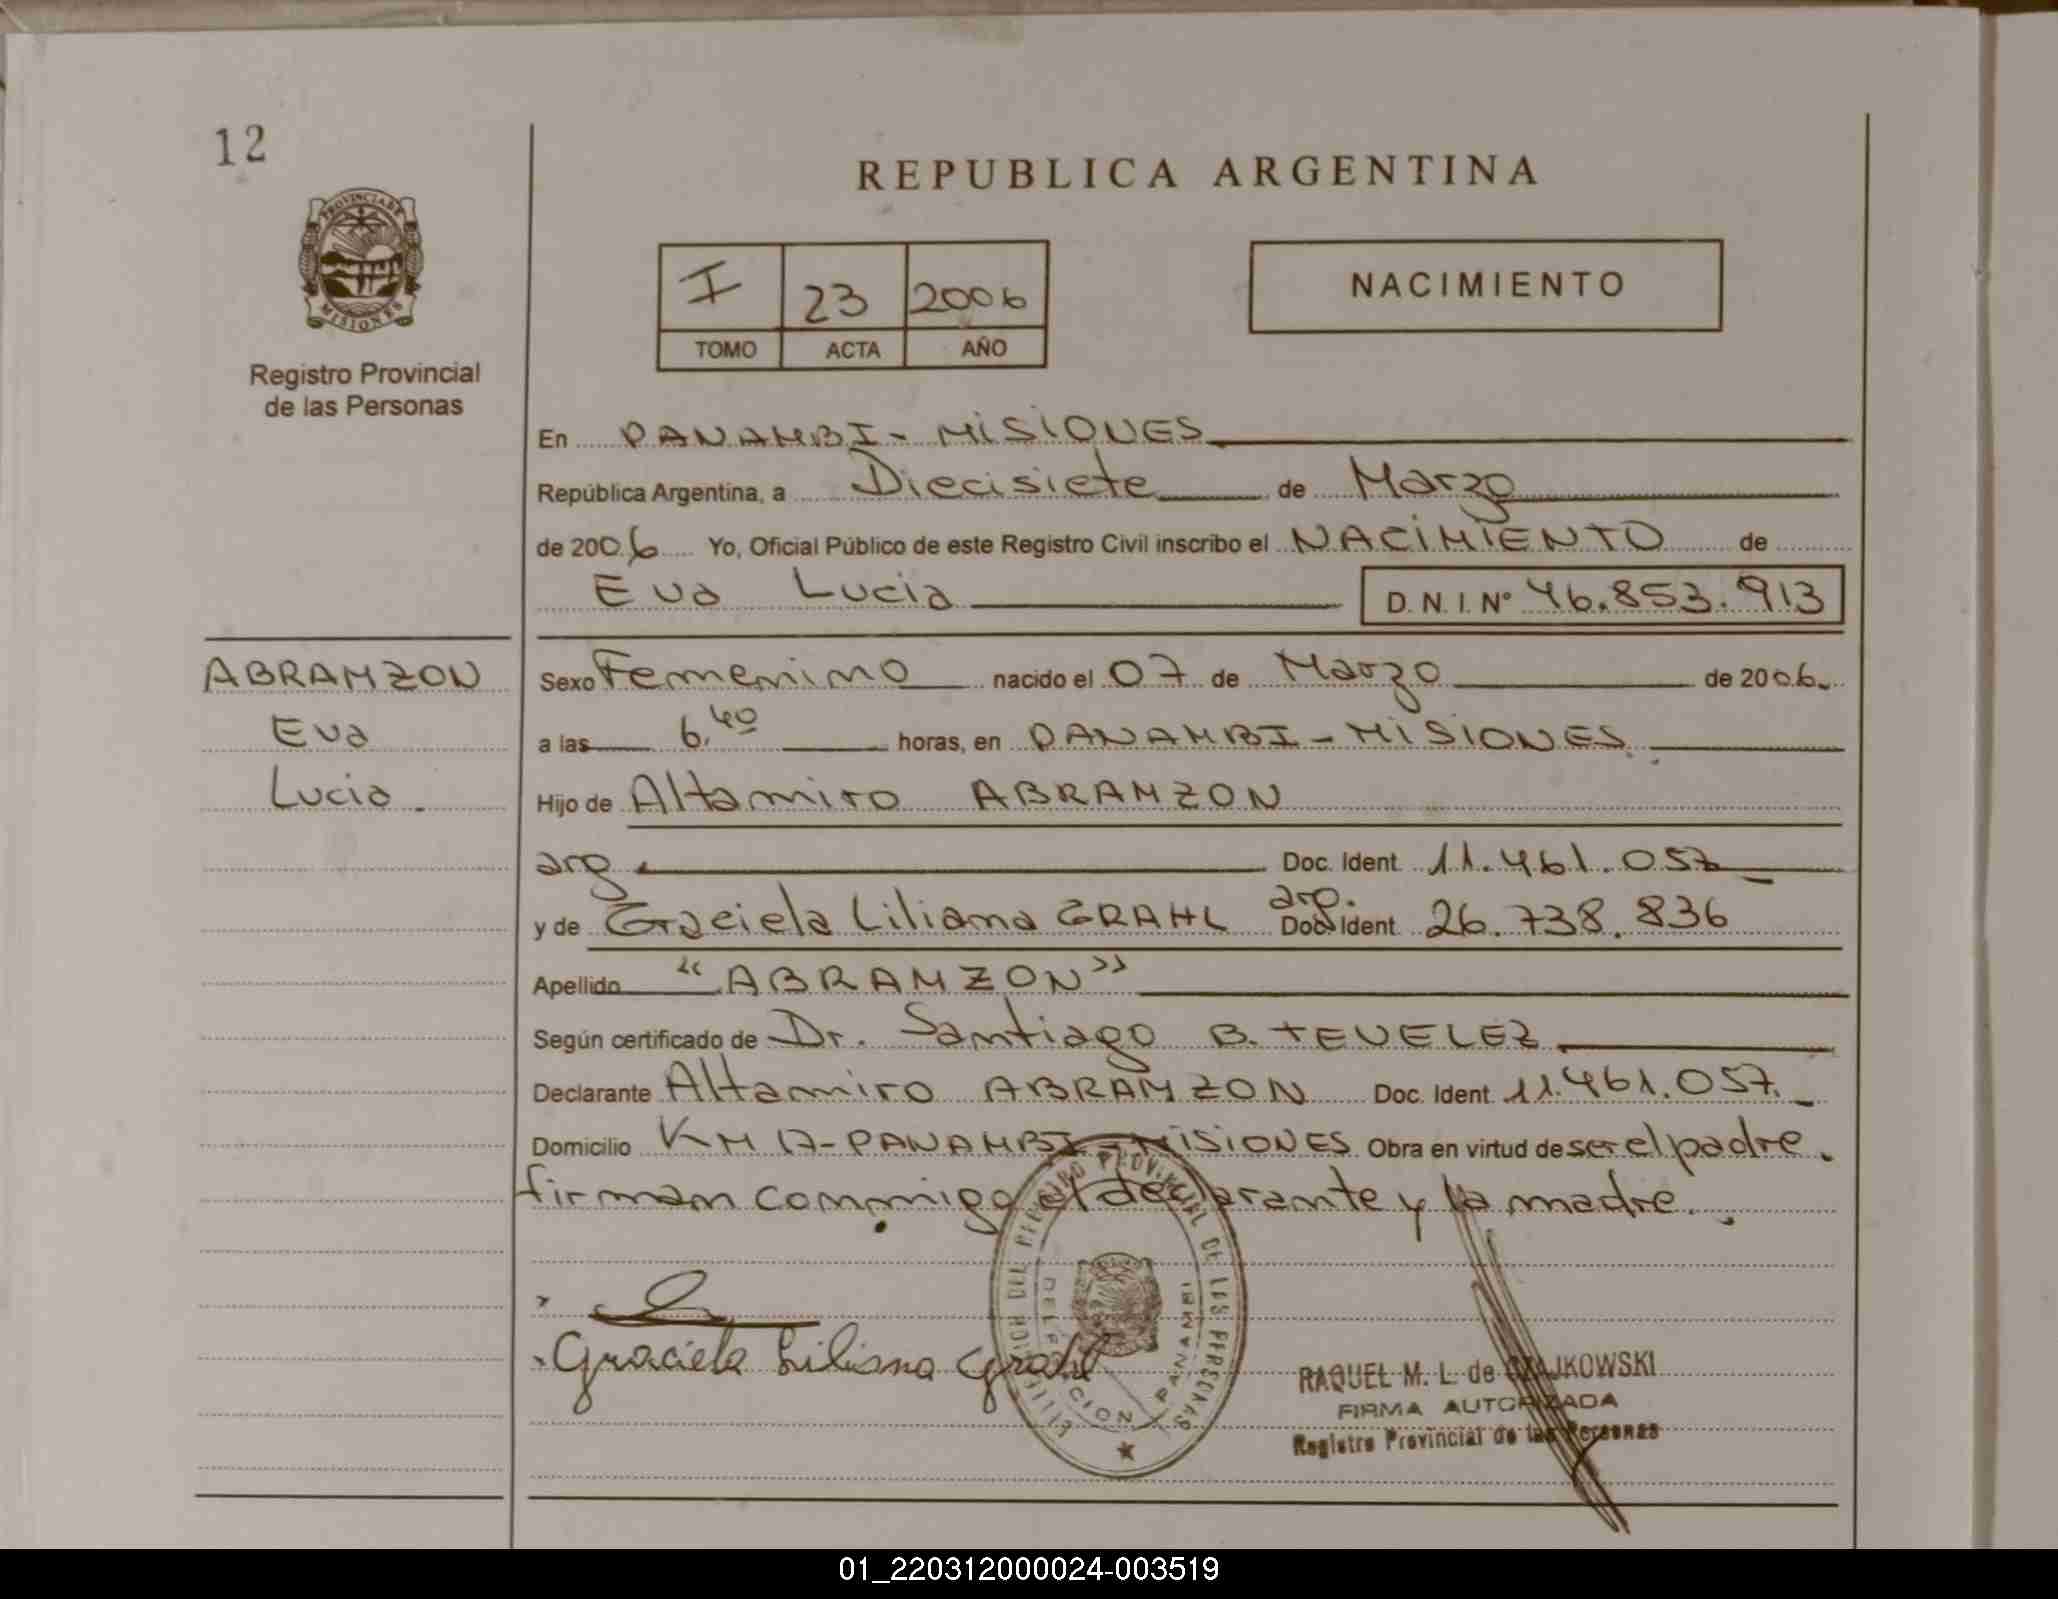 12
REPUBLICA ARGENTINA
PROVINCIA DE
MISIONES
Registro Provincial
de las Personas
I 23 2006
TOMO ACTA AÑO
NACIMIENTO
En PANAMBI - MISIONES
República Argentina, a Diecisiete de Marzo
de 2006 Yo, Oficial Público de este Registro Civil inscribo el NACIMIENTO de
Eva Lucia D. N. I. N° 46.853.913
ABRAMZON
Eva
Lucia.
Sexo Femenino nacido el 07 de Marzo de 2006.
a las 6.40 horas, en PANAMBI - MISIONES
Hijo de Altamiro ABRAMZON
arg. Doc. Ident. 11.461.057
y de Graciela Liliana GRAHL arg. Doc. Ident. 26.738.836
Apellido "ABRAMZON"
Según certificado de Dr. Santiago B. TEVELEZ
Declarante Altamiro ABRAMZON Doc. Ident. 11.461.057.
Domicilio KM 17 - PANAMBI - MISIONES Obra en virtud de ser el padre.
firman conmigo el declarante y la madre.
Graciela Liliana Grahl
PROVINCIAL DE LAS PERSONAS
DELEGACION PANAMBI
RAQUEL M. L. de CZAJKOWSKI
FIRMA AUTORIZADA
Registro Provincial de las Personas
01_220312000024-003519